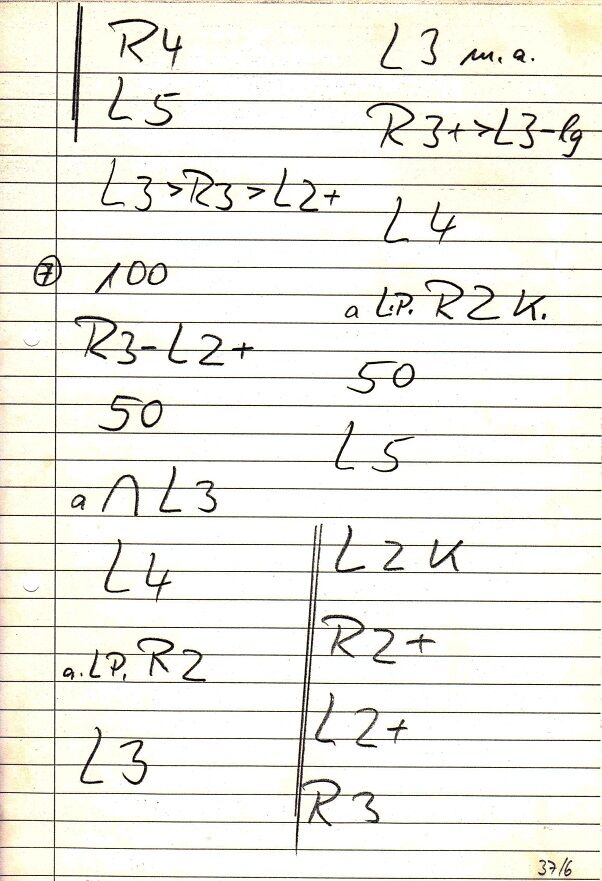 R4
L5
L3>R3>L2+
7 100
R3-L2+
50
a ∩ L3
L4
a. L.P. R2
L3
L3 m.a.
R3+>L3-lg
L4
a L.P. R2 K.
50
L5
L2 K
R2+
L2+
R3
37/6